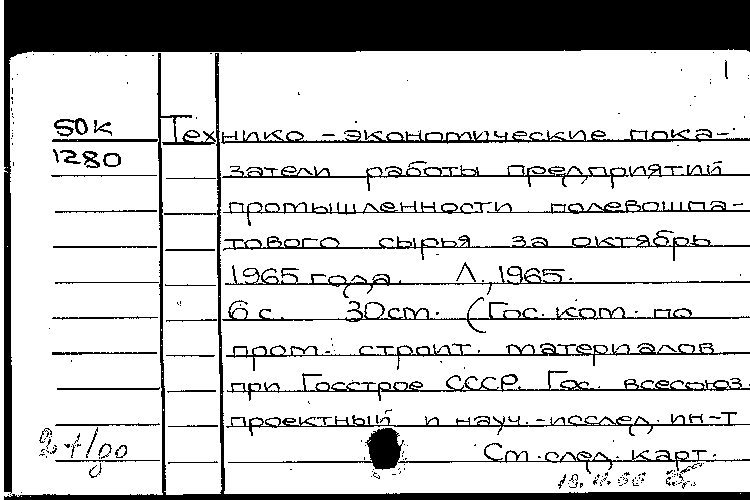 1
50к Технико-экономические пока-
1280 затели работы предприятий
промышленности полевошпа-
тового сырья за октябрь
1965 года. Л., 1965.
6 с. 30 см. (Гос. ком. по
пром. строит. материалов
при Госстрое СССР. Гос. всесоюз.
проектный и науч.-исслед. ин-т
См. след. карт.